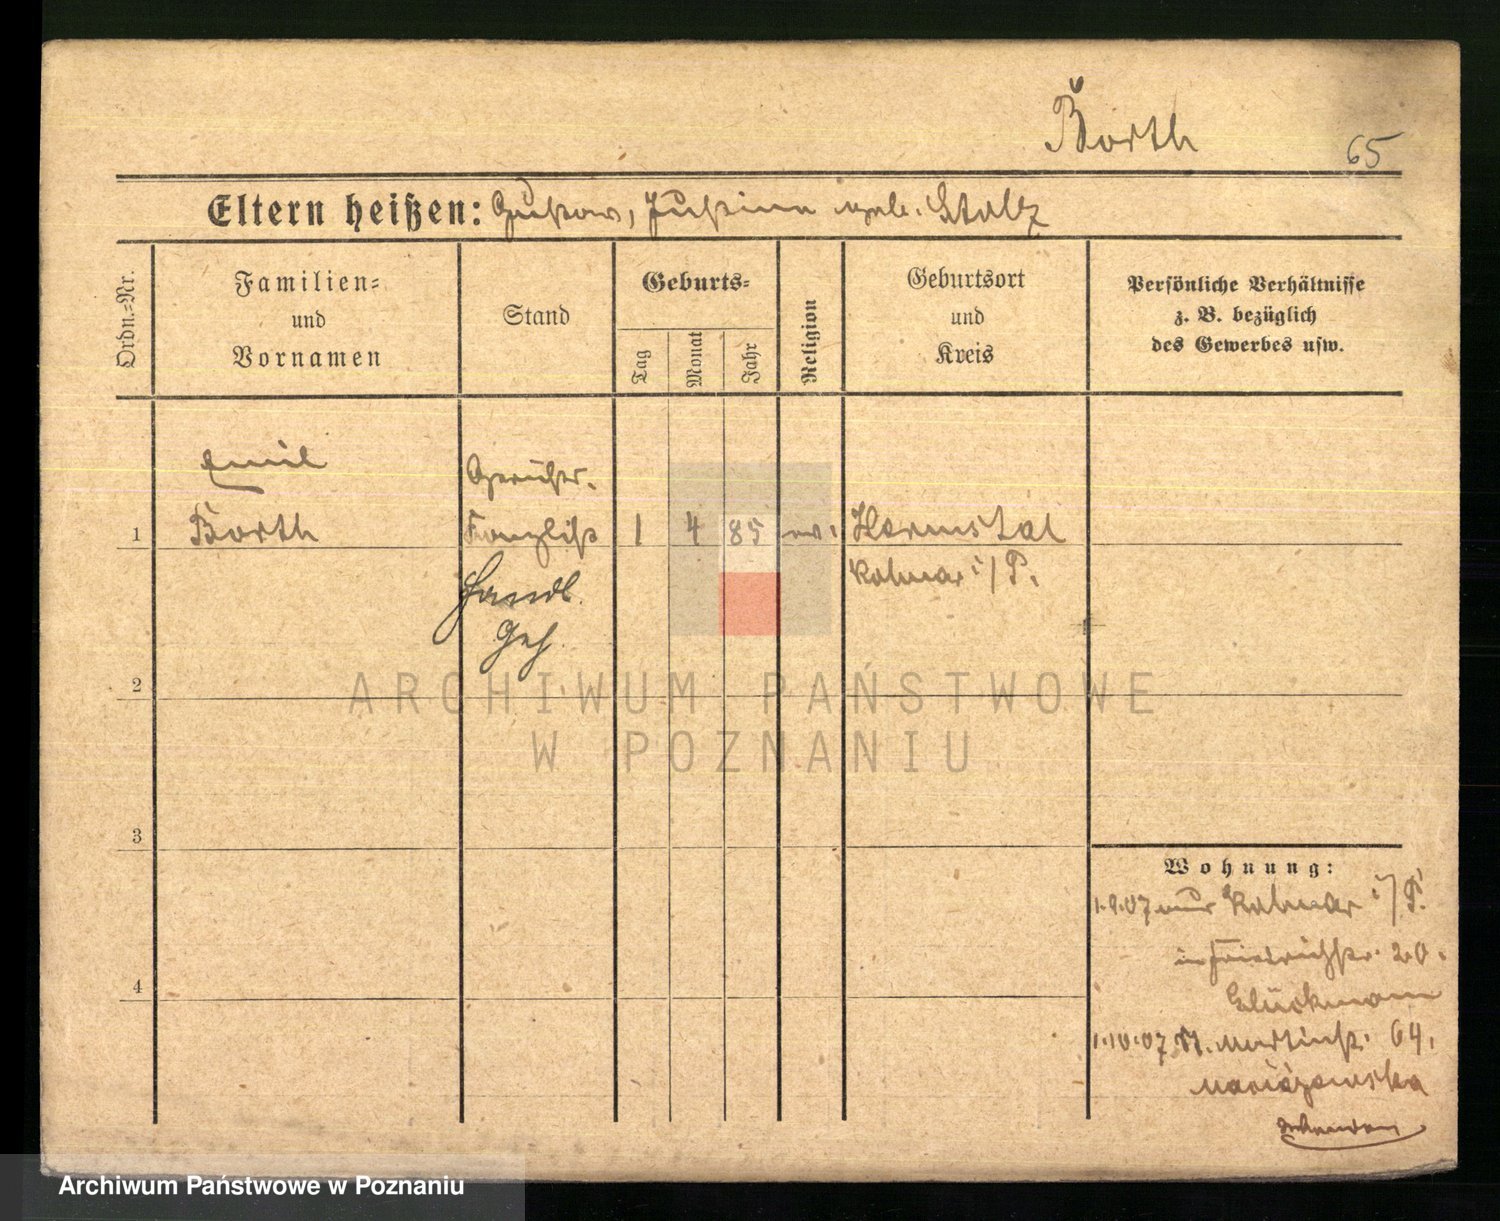 Borth
65
Eltern heißen: Gustav, Justine geb. Stolz
Ordn.-Nr.
Familien-
und
Vornamen
Stand
Geburts-
Tag
Monat
Jahr
Religion
Geburtsort
und
Kreis
Persönliche Verhältnisse
z. B. bezüglich
des Gewerbes usw.
Emil
Gerichts-
1 Borth Kanzlist 1 4 85 ev. Harmstal
Kolmar i/P.
Handl.
Geh.
2
ARCHIWUM PAŃSTWOWE
W POZNANIU
3
Wohnung:
1.9.07 Kolmar i/P.
Friedrichstr. 20.
Glückmann
4
1.10.07 St. Martinstr. 64.
Archiwum Państwowe w Poznaniu